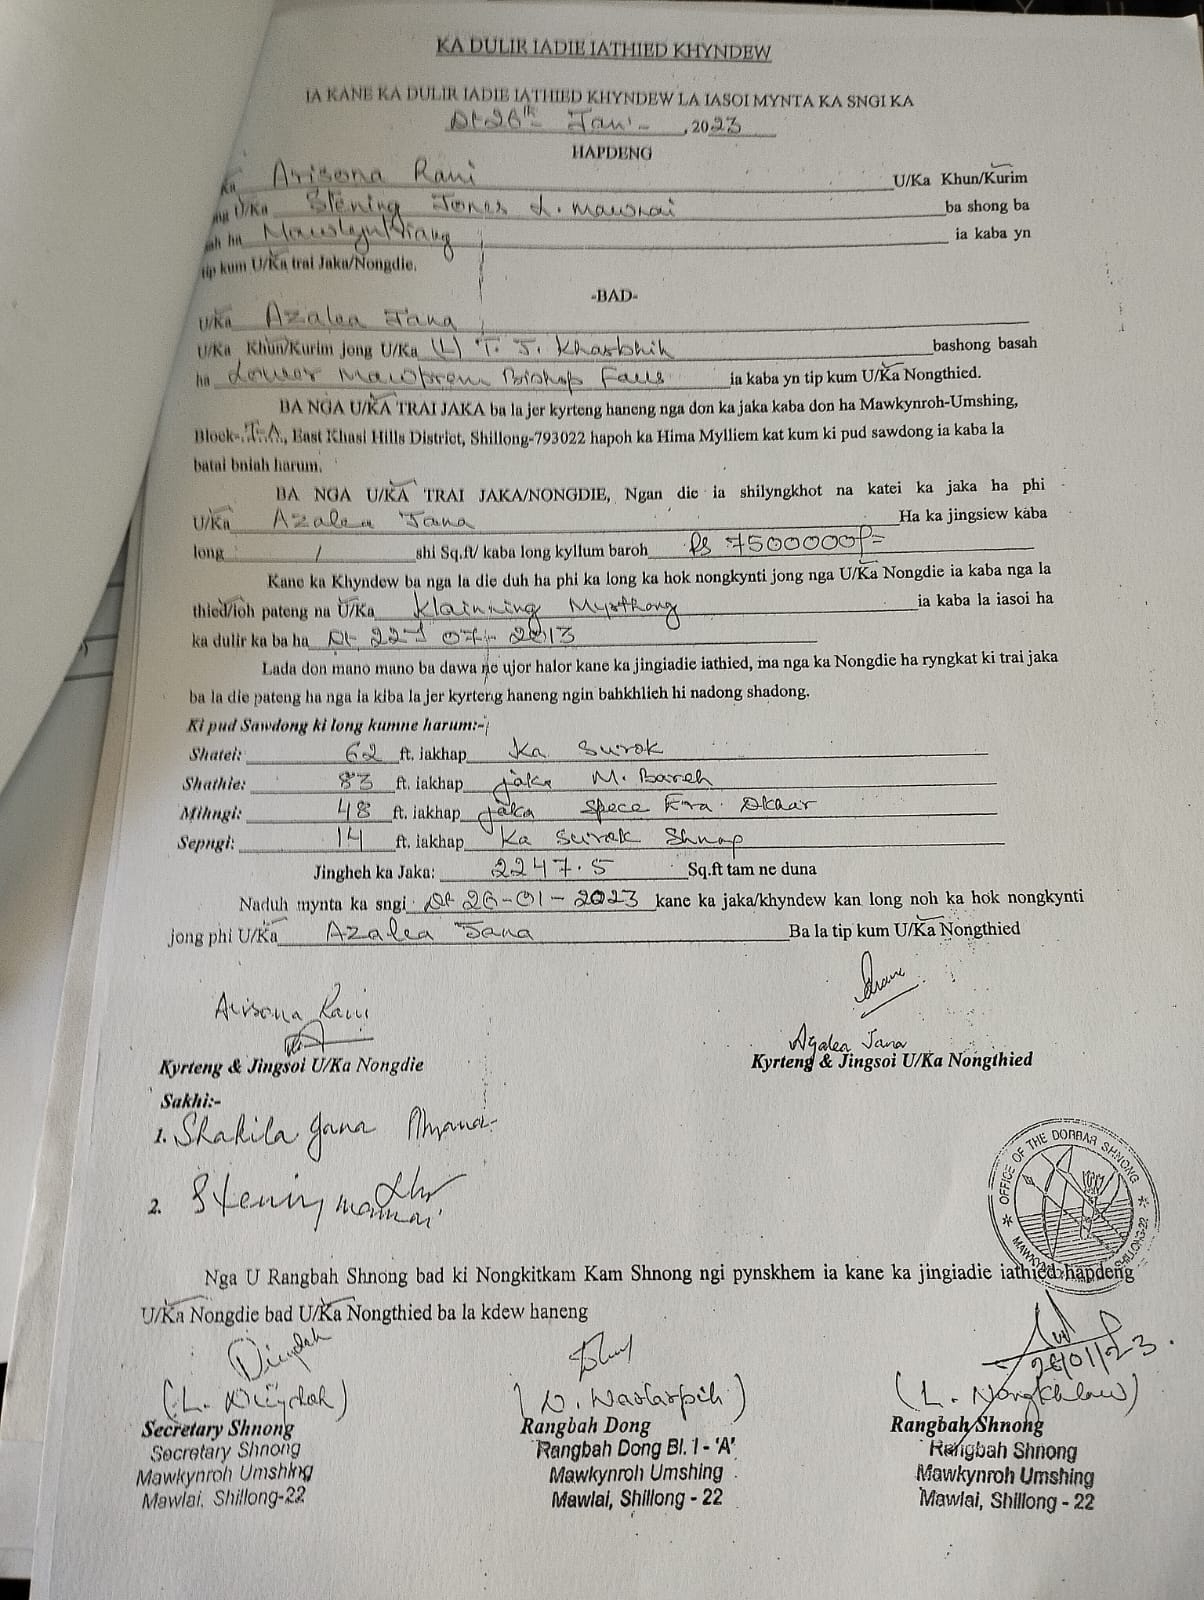 KA DULIR IADIE IATHIED KHYNDEW
IA KANE KA DULIR IADIE IATHIED KHYNDEW LA IASOI MYNTA KA SNGI KA
Dt 26th Jan'- , 2023
HAPDENG
Ka Arisona Rani U/Ka Khun/Kurim
U/Ka Stening Jones L. mawrai ba shong ba
ha ia kaba yn
tip kum U/Ka trai Jaka/Nongdie.
-BAD-
U/Ka Azalea Jana
U/Ka Khun/Kurim jong U/Ka (L) T. J. Kharbhih bashong basah
ha Lower Mawprem Bishop Falls ia kaba yn tip kum U/Ka Nongthied.
BA NGA U/KA TRAI JAKA ba la jer kyrteng haneng nga don ka jaka kaba don ha Mawkynroh-Umshing,
Block-.I-A., East Khasi Hills District, Shillong-793022 hapoh ka Hima Mylliem kat kum ki pud sawdong ia kaba la
batai bniah harum.
BA NGA U/KA TRAI JAKA/NONGDIE, Ngan die ia shilyngkhot na katei ka jaka ha phi
U/Ka Azalea Jana Ha ka jingsiew kaba
long / shi Sq.ft/ kaba long kyllum baroh Rs 7500000/=
Kane ka Khyndew ba nga la die duh ha phi ka long ka hok nongkynti jong nga U/Ka Nongdie ia kaba nga la
thied/ioh pateng na U/Ka Klainning Myrthong ia kaba la iasoi ha
ka dulir ka ba ha Dt 22-07-2013
Lada don mano mano ba dawa ne ujor halor kane ka jingiadie iathied, ma nga ka Nongdie ha ryngkat ki trai jaka
ba la die pateng ha nga ia kiba la jer kyrteng haneng ngin bahkhlieh hi nadong shadong.
Ki pud Sawdong ki long kumne harum:-
Shatei: 62 ft. iakhap Ka Surok
Shathie: 83 ft. iakhap jaka M. Bareh
Mihngi: 48 ft. iakhap jaka Spece Era. Dkhar
Sepngi: 14 ft. iakhap Ka Surok Shnap
Jingheh ka Jaka: 2247.5 Sq.ft tam ne duna
Naduh mynta ka sngi Dt 26-01-2023 kane ka jaka/khyndew kan long noh ka hok nongkynti
jong phi U/Ka Azalea Jana Ba la tip kum U/Ka Nongthied
Arisona Rani
Azalea Jana
Kyrteng & Jingsoi U/Ka Nongdie Kyrteng & Jingsoi U/Ka Nongthied
Sakhi:-
1. Shakila Jana
2.
OFFICE OF THE DORBAR SHNONG
Nga U Rangbah Shnong bad ki Nongkitkam Kam Shnong ngi pynskhem ia kane ka jingiadie iathied hapdeng
U/Ka Nongdie bad U/Ka Nongthied ba la kdew haneng
26/01/23.
(L. Diengdoh) (L. Nongkhlaw)
Secretary Shnong Rangbah Dong Rangbah Shnong
Secretary Shnong Rangbah Dong Bl. I - 'A' Rangbah Shnong
Mawkynroh Umshing Mawkynroh Umshing Mawkynroh Umshing
Mawlai, Shillong-22 Mawlai, Shillong - 22 Mawlai, Shillong - 22